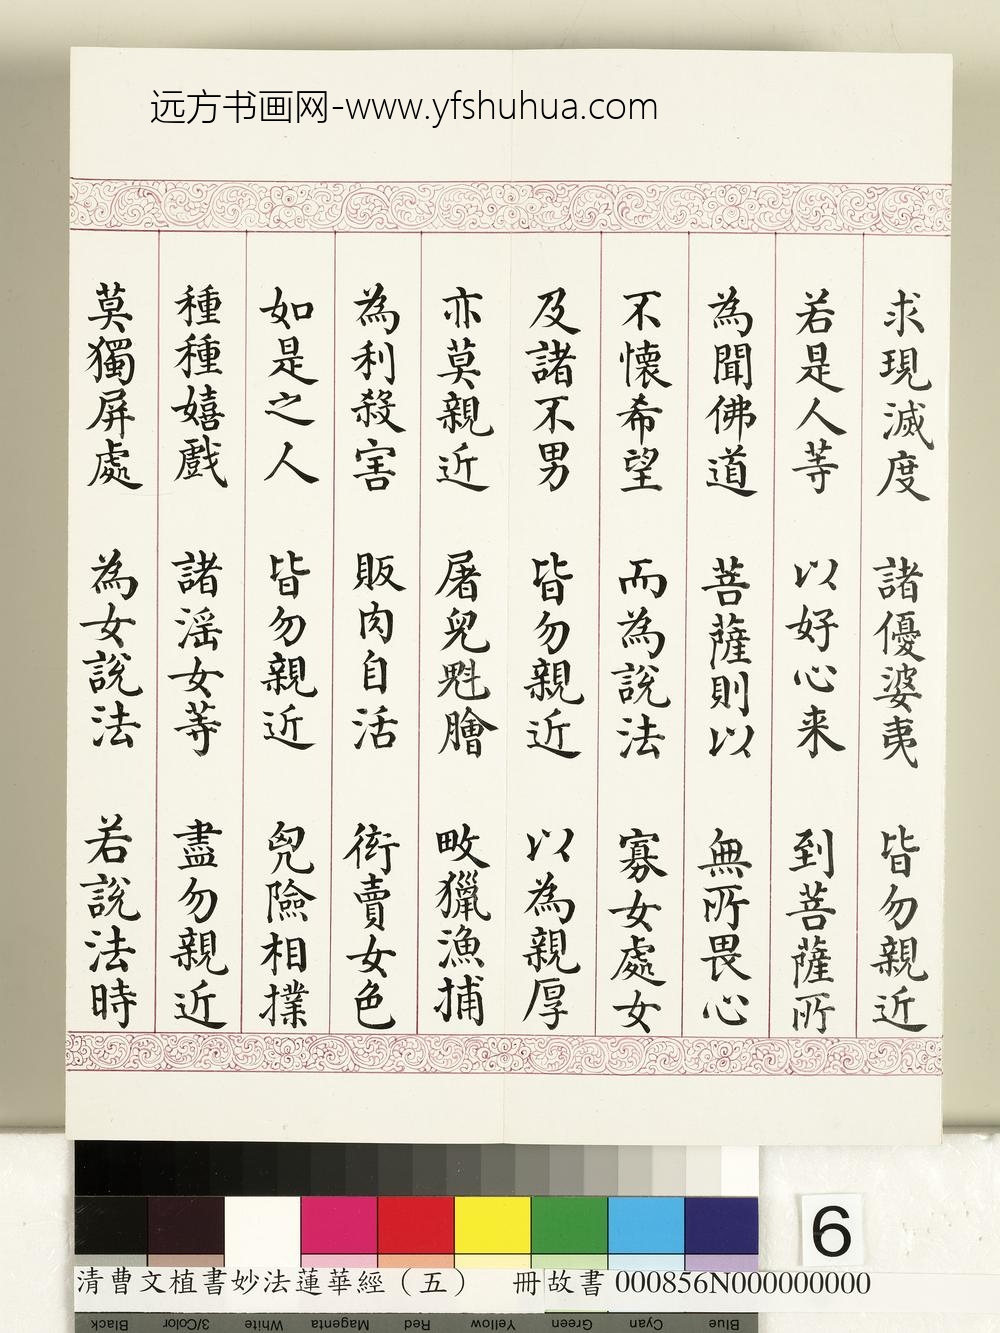 远方书画网-www.yfshuhua.com
求現滅度 諸優婆夷 皆勿親近
若是人等 以好心来 到菩薩所
為聞佛道 菩薩則以 無所畏心
不懷希望 而為說法 寡女處女
及諸不男 皆勿親近 以為親厚
亦莫親近 屠兒魁膾 畋獵漁捕
為利殺害 販肉自活 衒賣女色
如是之人 皆勿親近 兇險相撲
種種嬉戲 諸淫女等 盡勿親近
莫獨屏處 為女說法 若說法時
6
清曹文植書妙法蓮華經（五） 冊故書000856N000000000
Black 3/Color White Magenta Red Yellow Green Cyan Blue